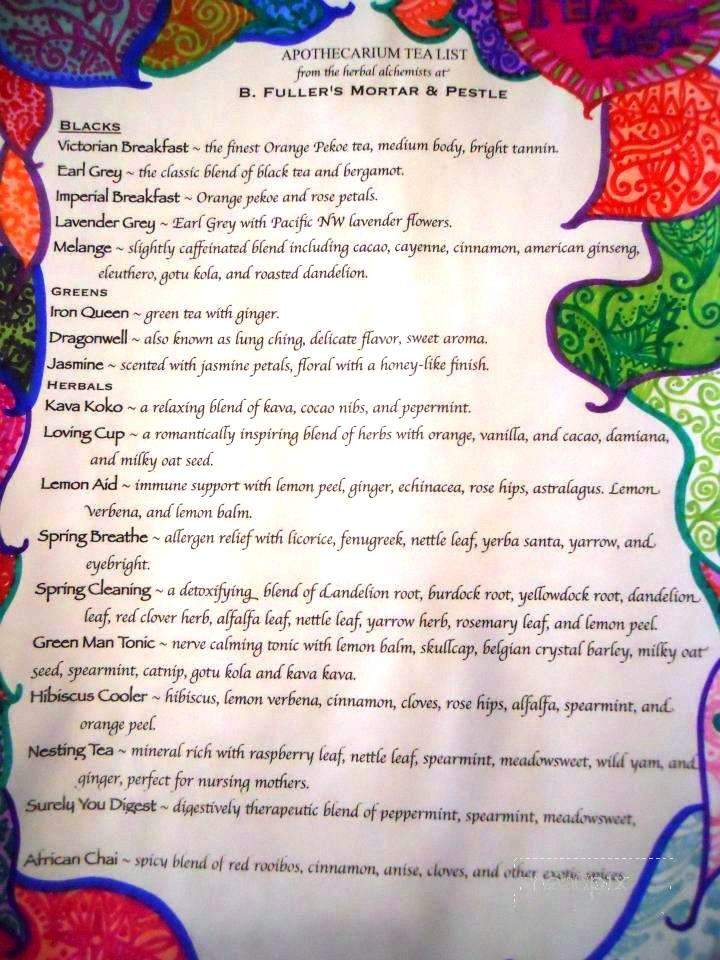 TEA LIST
APOTHECARIUM TEA LIST
from the herbal alchemists at
B. FULLER'S MORTAR & PESTLE
BLACKS
Victorian Breakfast ~ the finest Orange Pekoe tea, medium body, bright tannin.
Earl Grey ~ the classic blend of black tea and bergamot.
Imperial Breakfast ~ Orange pekoe and rose petals.
Lavender Grey ~ Earl Grey with Pacific NW lavender flowers.
Melange ~ slightly caffeinated blend including cacao, cayenne, cinnamon, american ginseng,
eleuthero, gotu kola, and roasted dandelion.
GREENS
Iron Queen ~ green tea with ginger.
Dragonwell ~ also known as lung ching, delicate flavor, sweet aroma.
Jasmine ~ scented with jasmine petals, floral with a honey-like finish.
HERBALS
Kava Koko ~ a relaxing blend of kava, cocao nibs, and pepermint.
Loving Cup ~ a romantically inspiring blend of herbs with orange, vanilla, and cacao, damiana,
and milky oat seed.
Lemon Aid ~ immune support with lemon peel, ginger, echinacea, rose hips, astralagus. Lemon
Verbena, and lemon balm.
Spring Breathe ~ allergen relief with licorice, fenugreek, nettle leaf, yerba santa, yarrow, and
eyebright.
Spring Cleaning ~ a detoxifying blend of dandelion root, burdock root, yellowdock root, dandelion
leaf, red clover herb, alfalfa leaf, nettle leaf, yarrow herb, rosemary leaf, and lemon peel.
Green Man Tonic ~ nerve calming tonic with lemon balm, skullcap, belgian crystal barley, milky oat
seed, spearmint, catnip, gotu kola and kava kava.
Hibiscus Cooler ~ hibiscus, lemon verbena, cinnamon, cloves, rose hips, alfalfa, spearmint, and
orange peel.
Nesting Tea ~ mineral rich with raspberry leaf, nettle leaf, spearmint, meadowsweet, wild yam, and
ginger, perfect for nursing mothers.
Surely You Digest ~ digestively therapeutic blend of peppermint, spearmint, meadowsweet,
African Chai ~ spicy blend of red rooibos, cinnamon, anise, cloves, and other exotic spices.